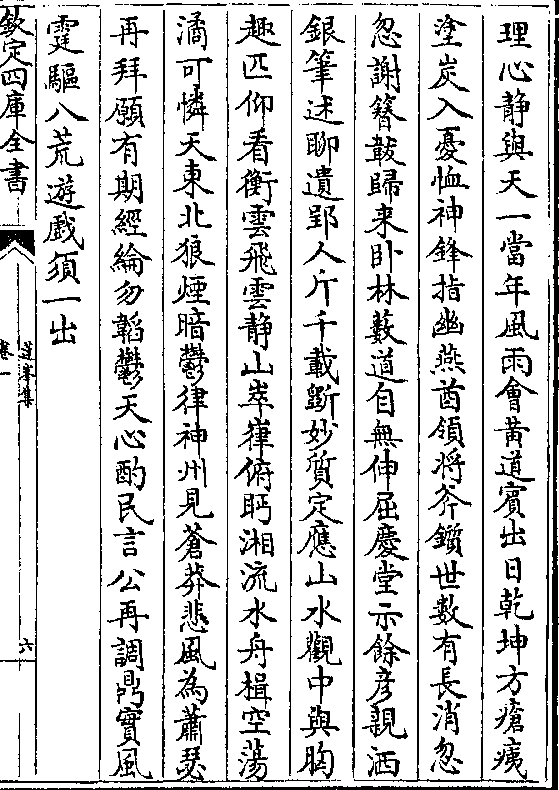 理心静與天一當年風雨會黄道賓出日乾坤方瘡痍
塗炭入憂恤神鋒指幽燕酋領将斧鑕世數有長消忽
忽謝簪韍歸来卧林藪道自無伸屈慶堂示餘彦親洒
銀筆述聊遺郢人斤千載斵妙質定應山水觀中與胸
趣匹仰看衡雲飛雲静山崒嵂俯眄湘流水舟楫空蕩
潏可憐天東北狼煙暗鬱律神州見蒼莽悲風為蕭瑟
再拜願有期經綸勿韜鬱天心酌民言公再調鼎實風
霆驅八荒遊戲須一出
欽定四庫全書
卷一
六